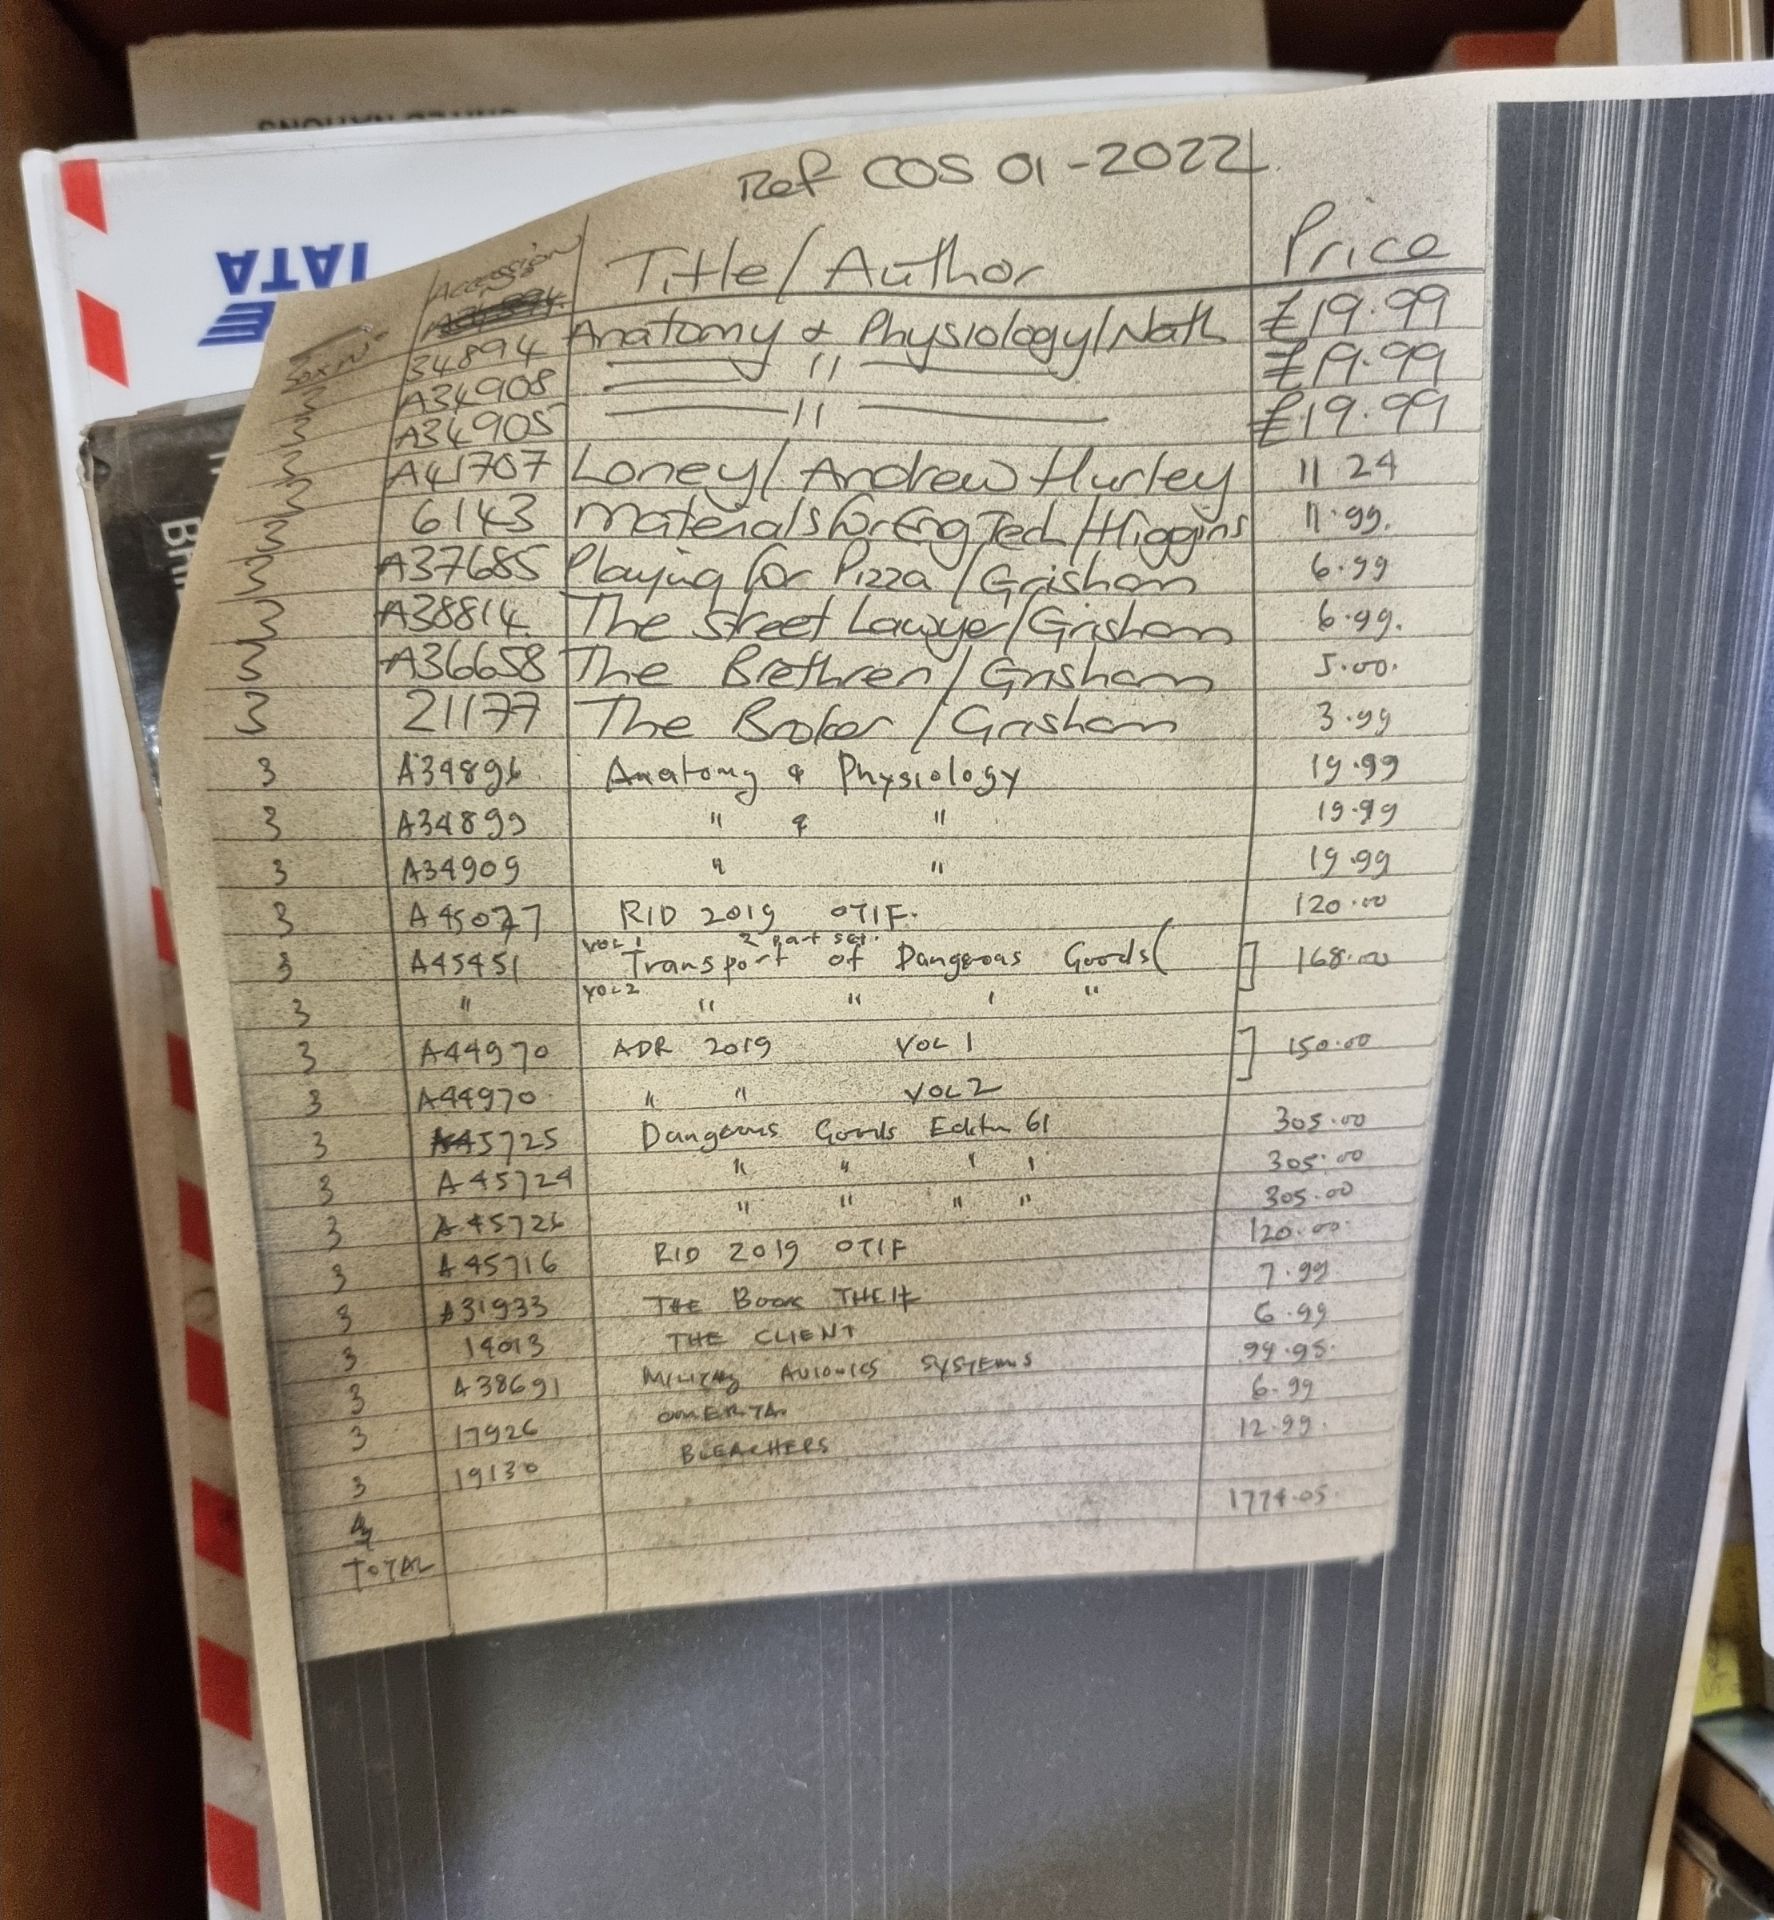 UNITED NATIONS
IATA
Ref COS 01-2022
Box No Accession Title/Author Price
34894 Anatomy & Physiology/Nath £19.99
3 A34908 " £19.99
3 A34905 " £19.99
3 A41707 Loney/Andrew Hurley 11 24
3 6143 Materials for Eng Tech/Higgins 11.99.
3 A37685 Playing for Pizza/Grisham 6.99
3 A38814 The Street Lawyer/Grisham 6.99.
3 A36658 The Brethren/Grisham 5.00.
3 21177 The Broker/Grisham 3.99
3 A34896 Anatomy & Physiology 19.99
3 A34899 " & " 19.99
3 A34909 " " 19.99
3 A45077 RID 2019 OTIF. 120.00
VOL 1 2 part set.
3 A45451 Transport of Dangerous Goods( 168.00
3 " VOL 2 " " " "
3 A44970 ADR 2019 VOL 1 150.00
3 A44970 " " VOL 2
3 A45725 Dangerous Goods Editn 61 305.00
3 A45724 " " " " 305.00
3 A45726 " " " " 305.00
3 A45716 RID 2019 OTIF 120.00
3 A31933 THE BOOK THEIF 7.99
3 14013 THE CLIENT 6.99
3 A38691 MILITARY AVIONICS SYSTEMS 94.95.
3 17926 OMERTA 6.99
3 19130 BLEACHERS 12.99.
TOTAL 1774.05